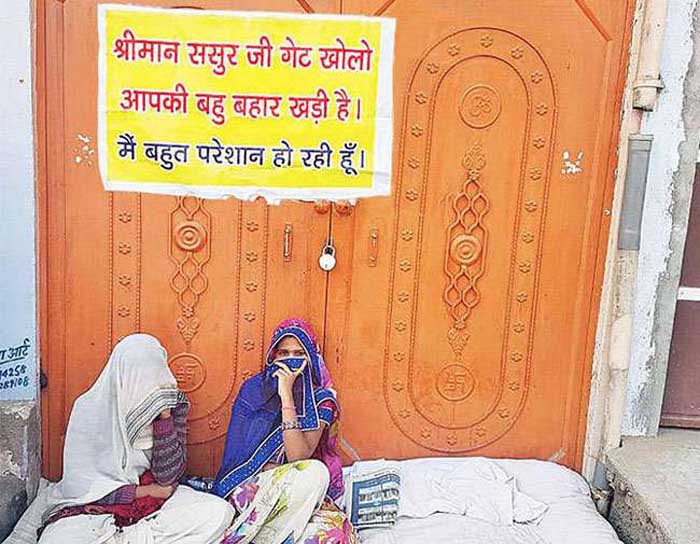 श्रीमान ससुर जी गेट खोलो
आपकी बहु बहार खड़ी है।
मैं बहुत परेशान हो रही हूँ।
आर्ट